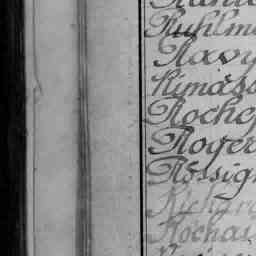 Ruhlm
Ravy
Rimass
Roche
Roger
Rossig
Richar
Rochai